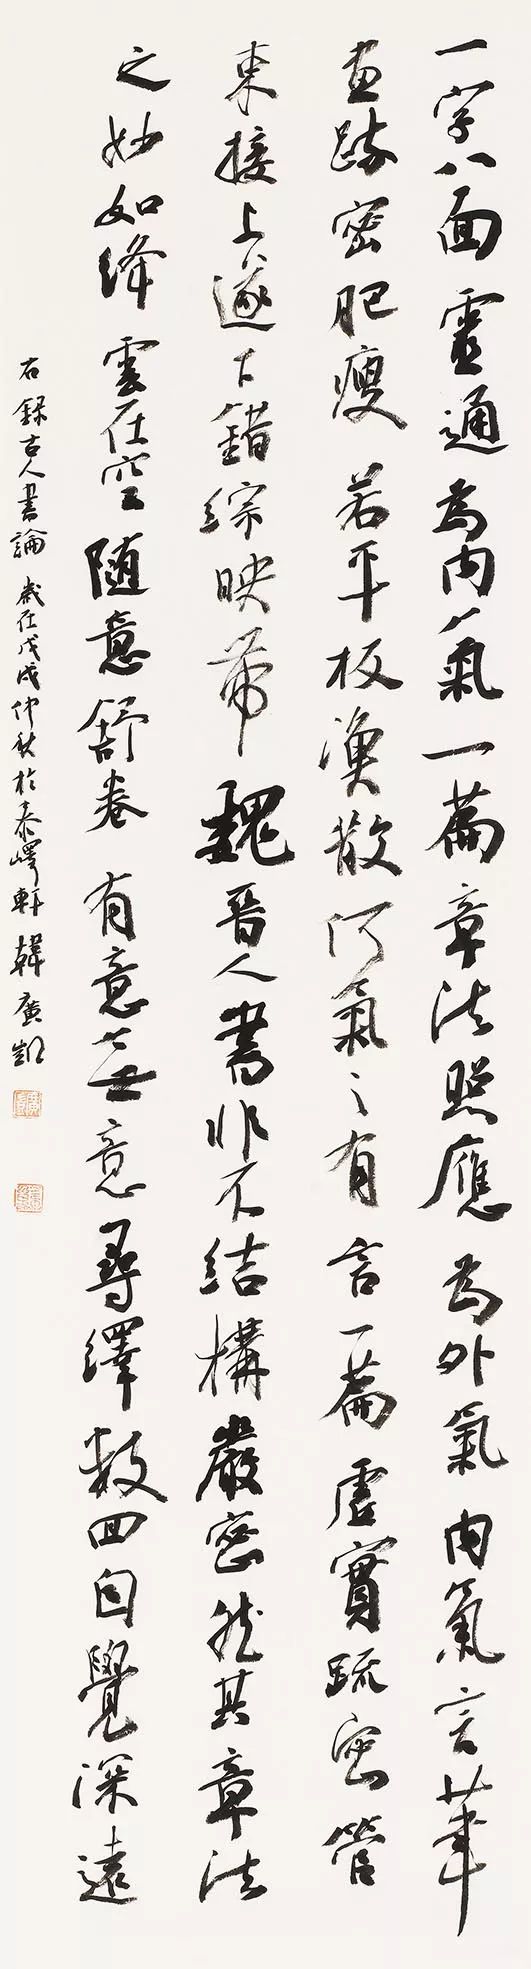 一字八面靈通為内氣一篇章法照應為外氣内氣言筆
畫疏密肥瘦若平板渙散何氣之有言一篇虛實疏密管
束接上遞下錯綜映帶魏晉人書非不結構嚴密然其章法
之妙如絳雲在空隨意舒卷有意無意尋繹數四自覺深遠
右錄古人書論歲在戊戌仲秋於泰嶧軒韓廣凱